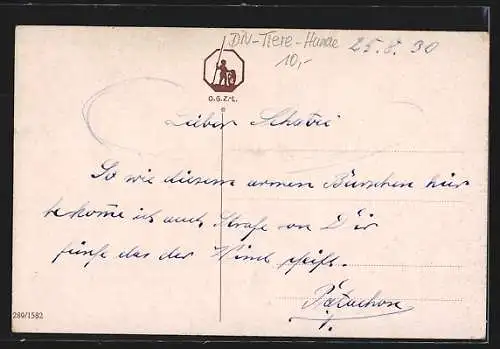 DIV-Tiere-Hunde
10,-
25.8.30
O.G.Z.-L.
Lieber Schatzi
So wie diesem armen Burschen hier
bekome ich auch Strafe von Dir
das der Wind pfeift.
Patachon
289/1582